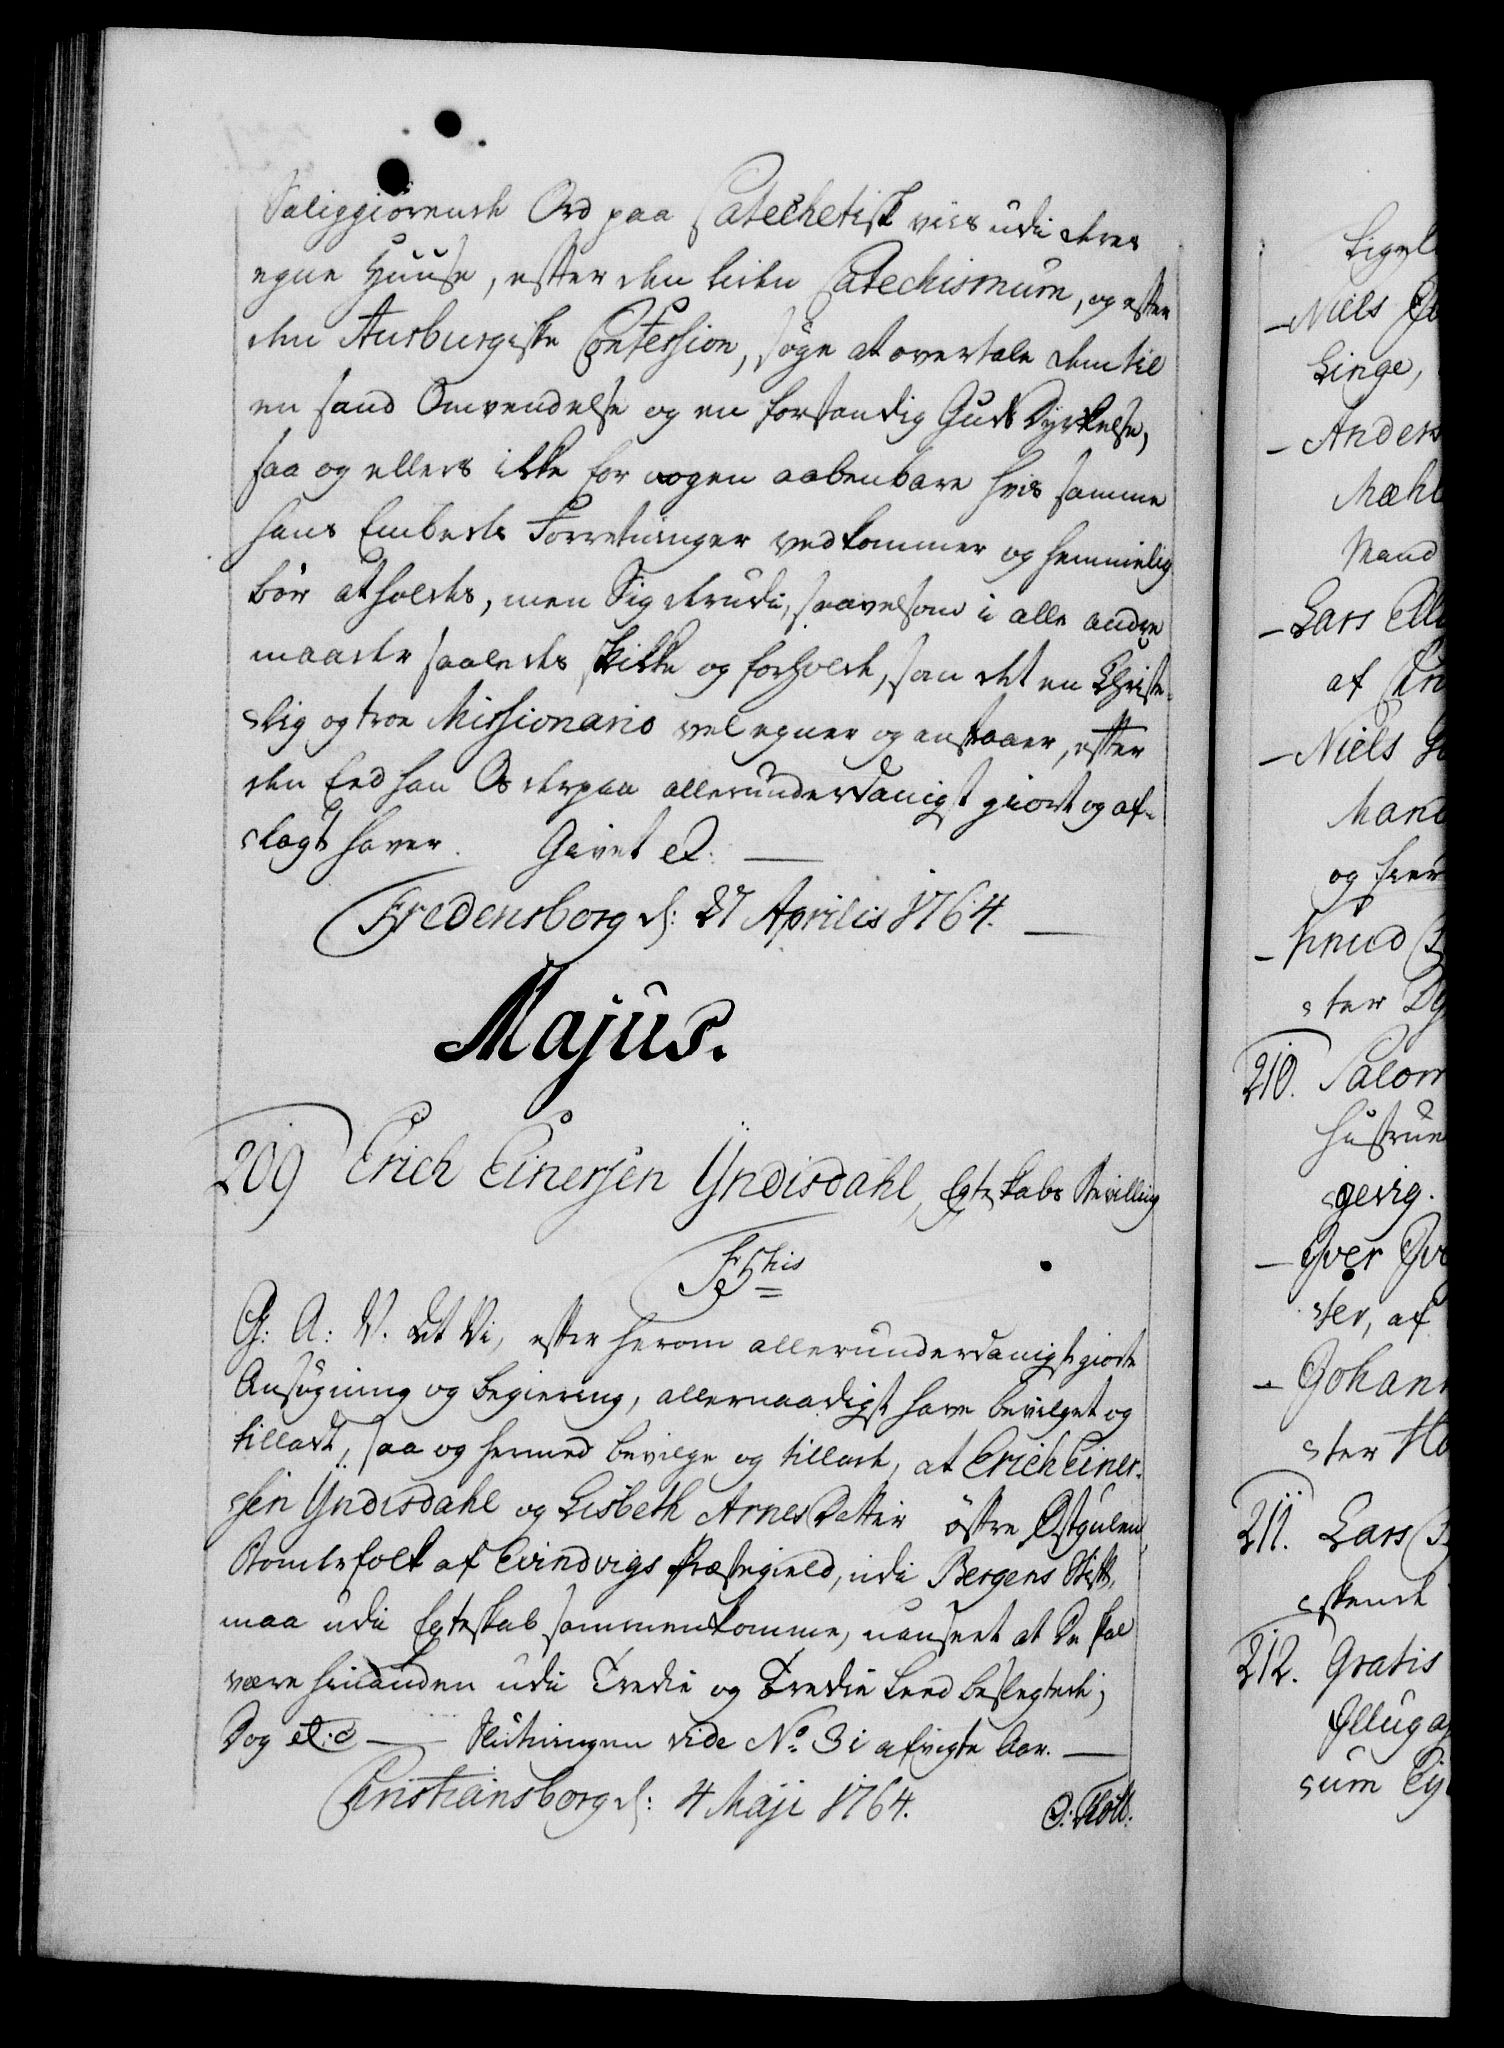 Saliggiørende Ord paa Catechetisk viis udi deres
egne Huuse, efter den liden Catechismum, og efter
den Ausburgiske Confession, søge at overtale dem til
en sand Omvendelse og en forstandig Guds Dyrkelse,
saa og ellers ikke for nogen aabenbare hvis samme
hans Embeds Forretninger vedkommer og hemmelig
bør at holdes, men Sig derudi, saavelsom i alle andre
maader saaledes skikke og forholde, som det en Christe-
lig og troe Missionario vel egner og anstaaer, efter
den Eed han Os derpaa allerunderdanigst giort og af-
lagt haver. Givet etc:
Fredensborg d: 27 Aprilis 1764.
Majus.
209 Erich Einersen Yndisdahl, Egteskabs Bevilling
G: A: V. at Vi, efter herom allerunderdanigst giorte
Ansøgning og begiering, allernaadigst have bevilget og
tilladt, saa og hermed bevilge og tillade, at Erich Einer-
sen Yndisdahl og Lisbeth Arnes Datter østre Østgulen,
Bondefolk af Evindvigs Præstegield, udi Bergens Stift,
maa udi Egteskab sammenkomme, uanseet at De skal
være hinanden udi Tredie og Tredie Leed beslegtede;
Dog etc: Slutningen vide No. 31 afvigte Aar.
Christiansborg d: 4 Maji 1764. O. Thott.
Ligel
Niels
Linge,
Anders
Mæhl
Mand
Lars
af
Niels
Mand
og
Knud
ter
210. Salom
Hustrue
gevig.
Iver
ter, af
Johann
ster
211. Lars
skende
212. Gratis
Illug
sum